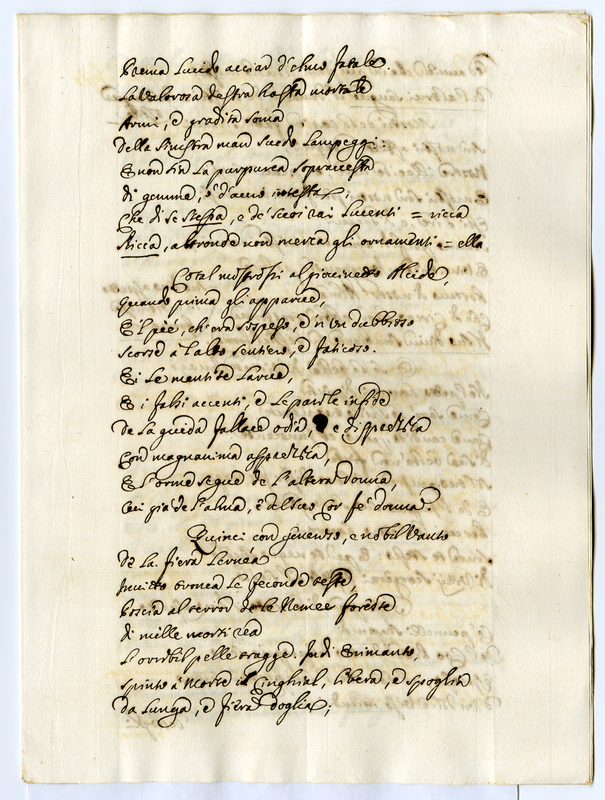 Prema lucido acciar d'elmo fatale.
La valorosa destra hasta mortale
Armi, e gradita soma
della sinistra man scudo lampeggi:
E non sia la purpurea sopravesta
di gemme, ò d'auro intesta,
Che di se stessa, e de' suoi rai lucenti = ricca
Ricca, altronde non merca gli ornamenti = ella
Cotal mostrossi al giovinetto Alcide,
Quando prima gli apparve,
E 'l piè, ch'era sospeso, è 'n un dubbioso
scorse à l'alto sentiero, e faticoso.
Ei le mentite larve,
E i falsi accenti, e le parole infide
de la guida fallace odia, e disprezza
Con magnanima asprezza,
E l'orme segue de l'altera donna,
Cui già de l'alma, e del suo Cor fè donna.
Quinci con generoso, e nobil vanto
de la fiera Lernea
Invitto tronca le feconde teste,
Poscia al terror de le Nemee foreste
di mille morti rea
L'orribil pelle tragge. Indi Erimanto,
spinto à Morte il Cinghial, libera, e spoglia
da lunga, e fiera doglia;